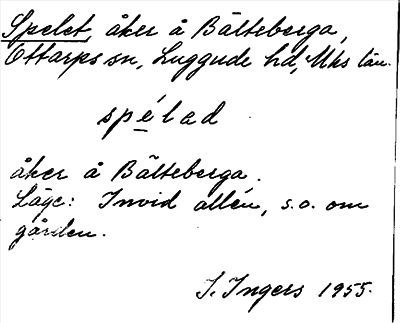 Spelet, åker å Bälteberga,
Ottarps sn, Luggude hd, Mhs län.
spélad
åker å Bälteberga.
Läge: Invid allén, s.o. om
gården.
I. Ingers 1955.